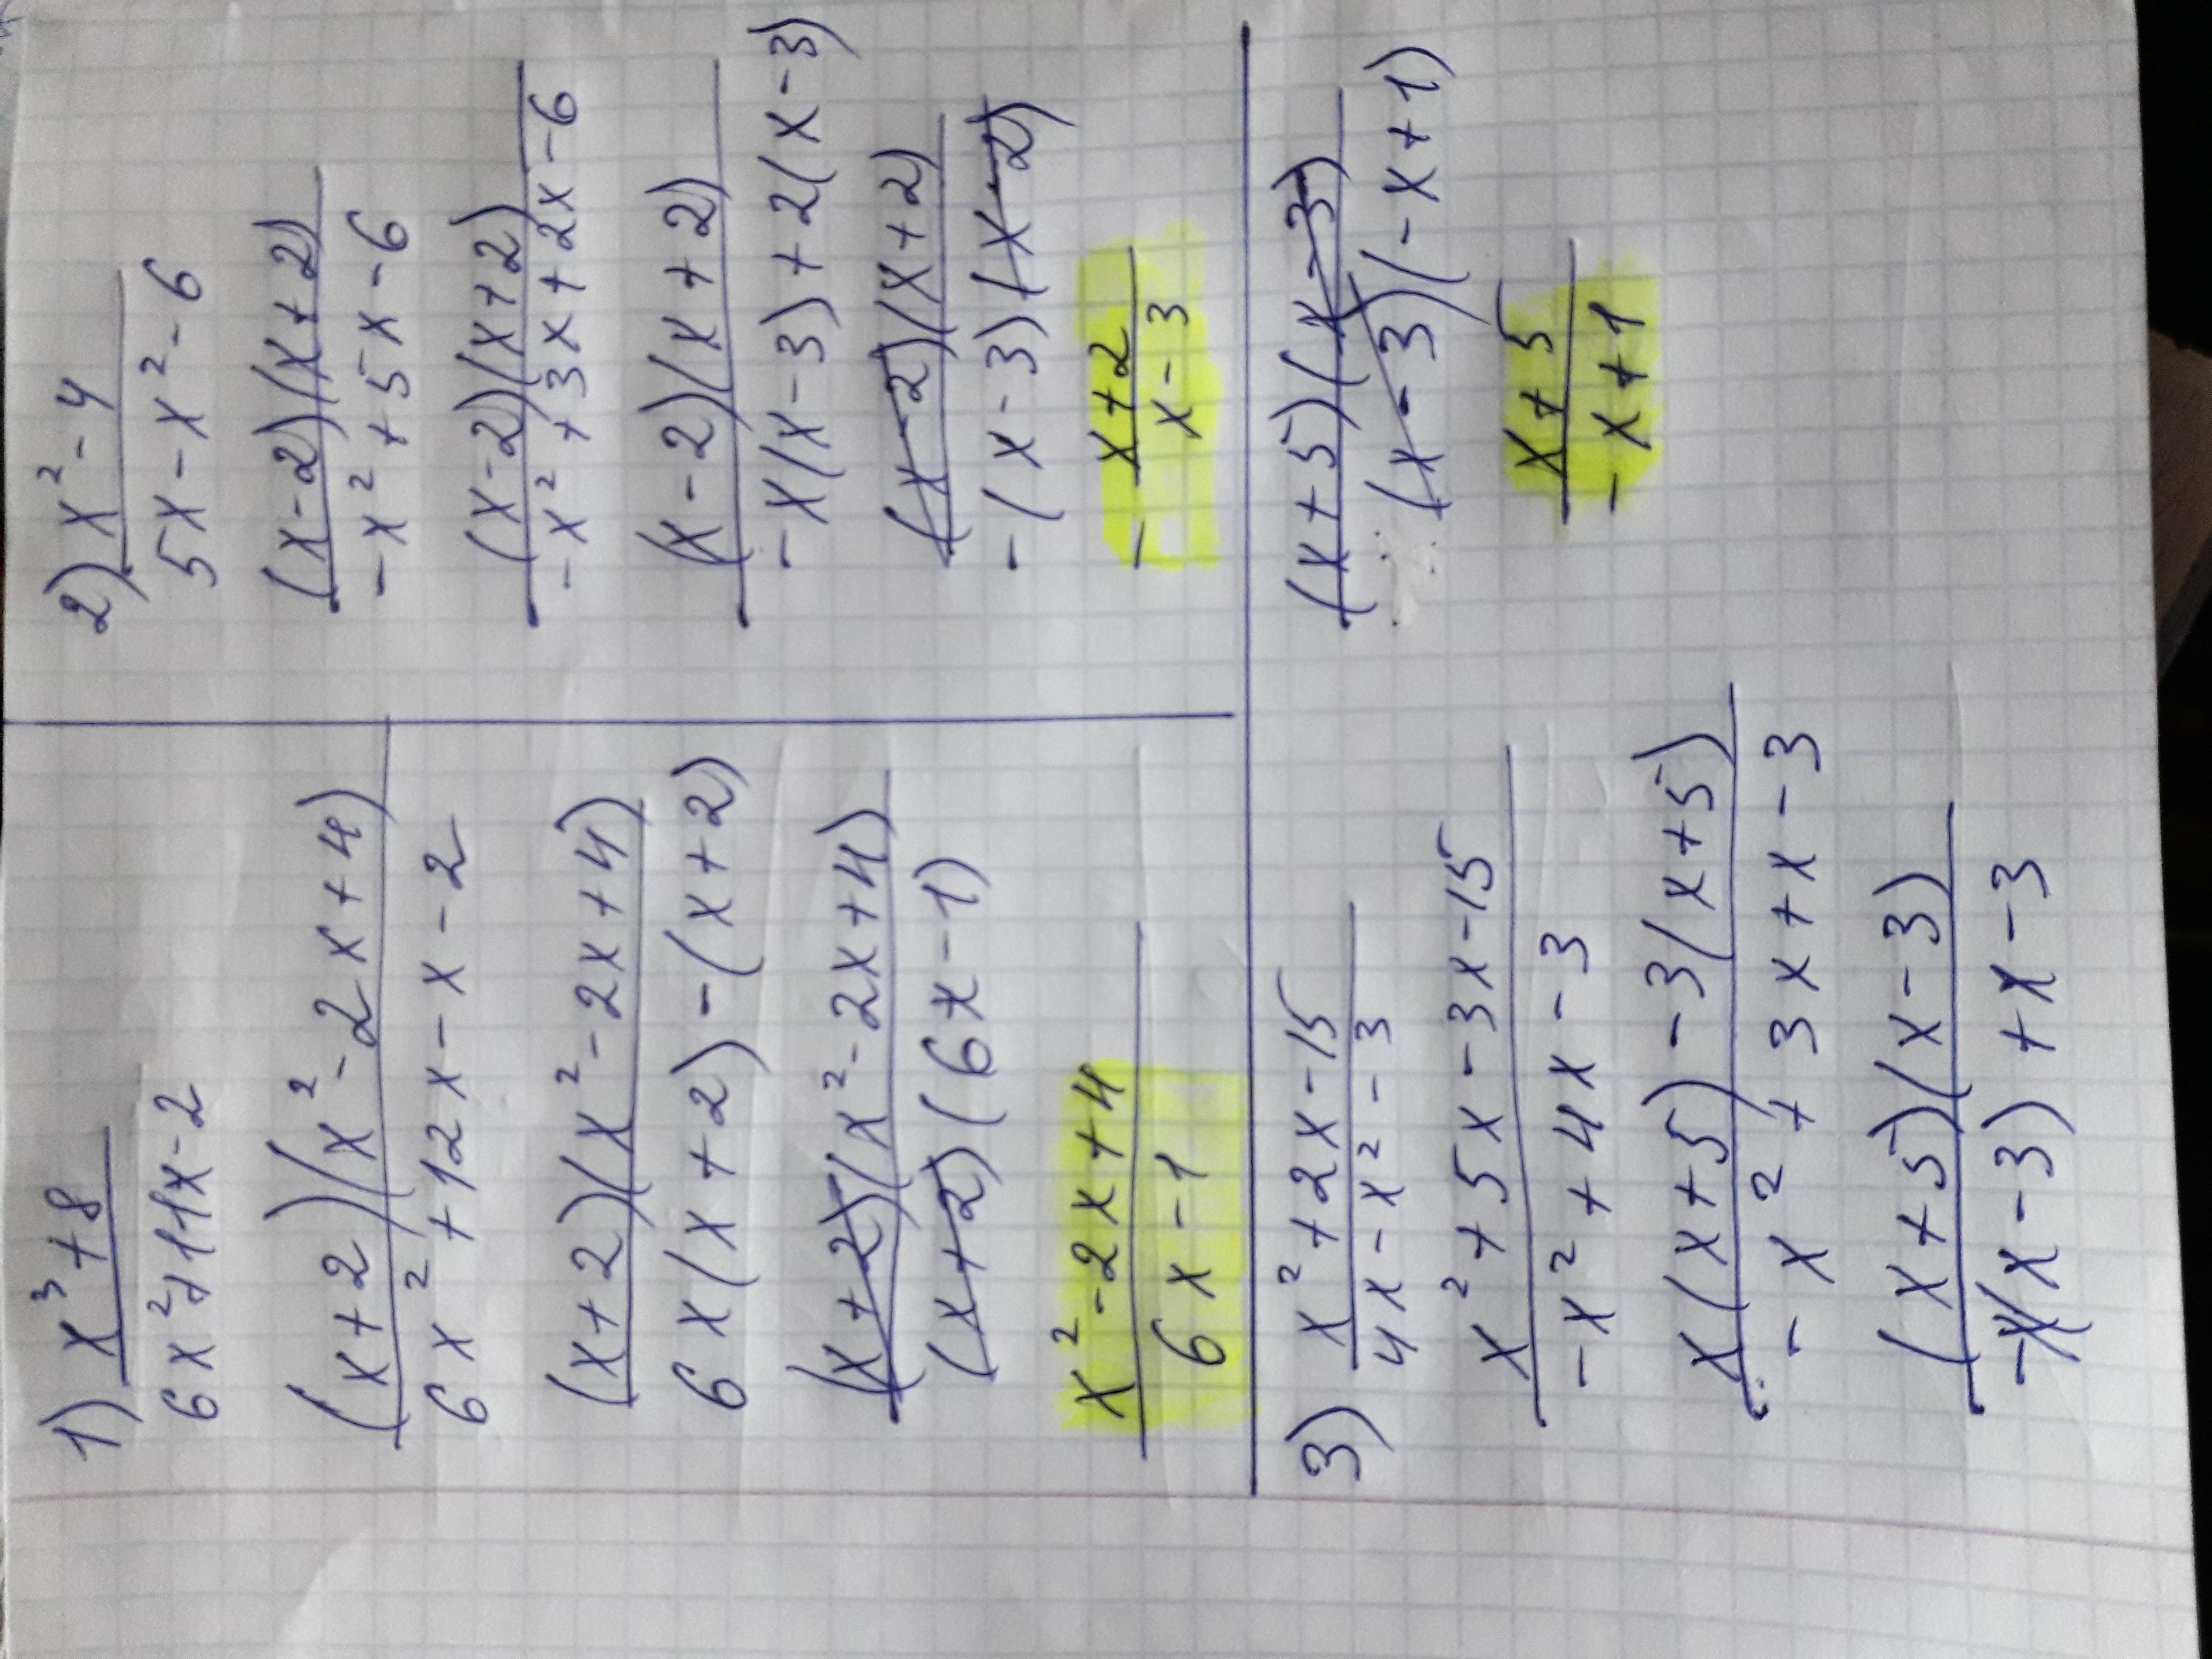 1) x³+8
6x²+11x-2
(x+2)(x²-2x+4)
6x²+12x-x-2
(x+2)(x²-2x+4)
6x(x+2)-(x+2)
(x+2)(x²-2x+4)
(x+2)(6x-1)
x²-2x+4
6x-1
2) x²-4
5x-x²-6
(x-2)(x+2)
-x²+5x-6
(x-2)(x+2)
-x²+3x+2x-6
(x-2)(x+2)
-x(x-3)+2(x-3)
(x-2)(x+2)
-(x-3)(x-2)
- x+2
x-3
3) x²+2x-15
4x-x²-3
x²+5x-3x-15
-x²+4x-3
x(x+5)-3(x+5)
-x²+3x+x-3
(x+5)(x-3)
-x(x-3)+x-3
(x+5)(x-3)
(x-3)(-x+1)
x+5
-x+1